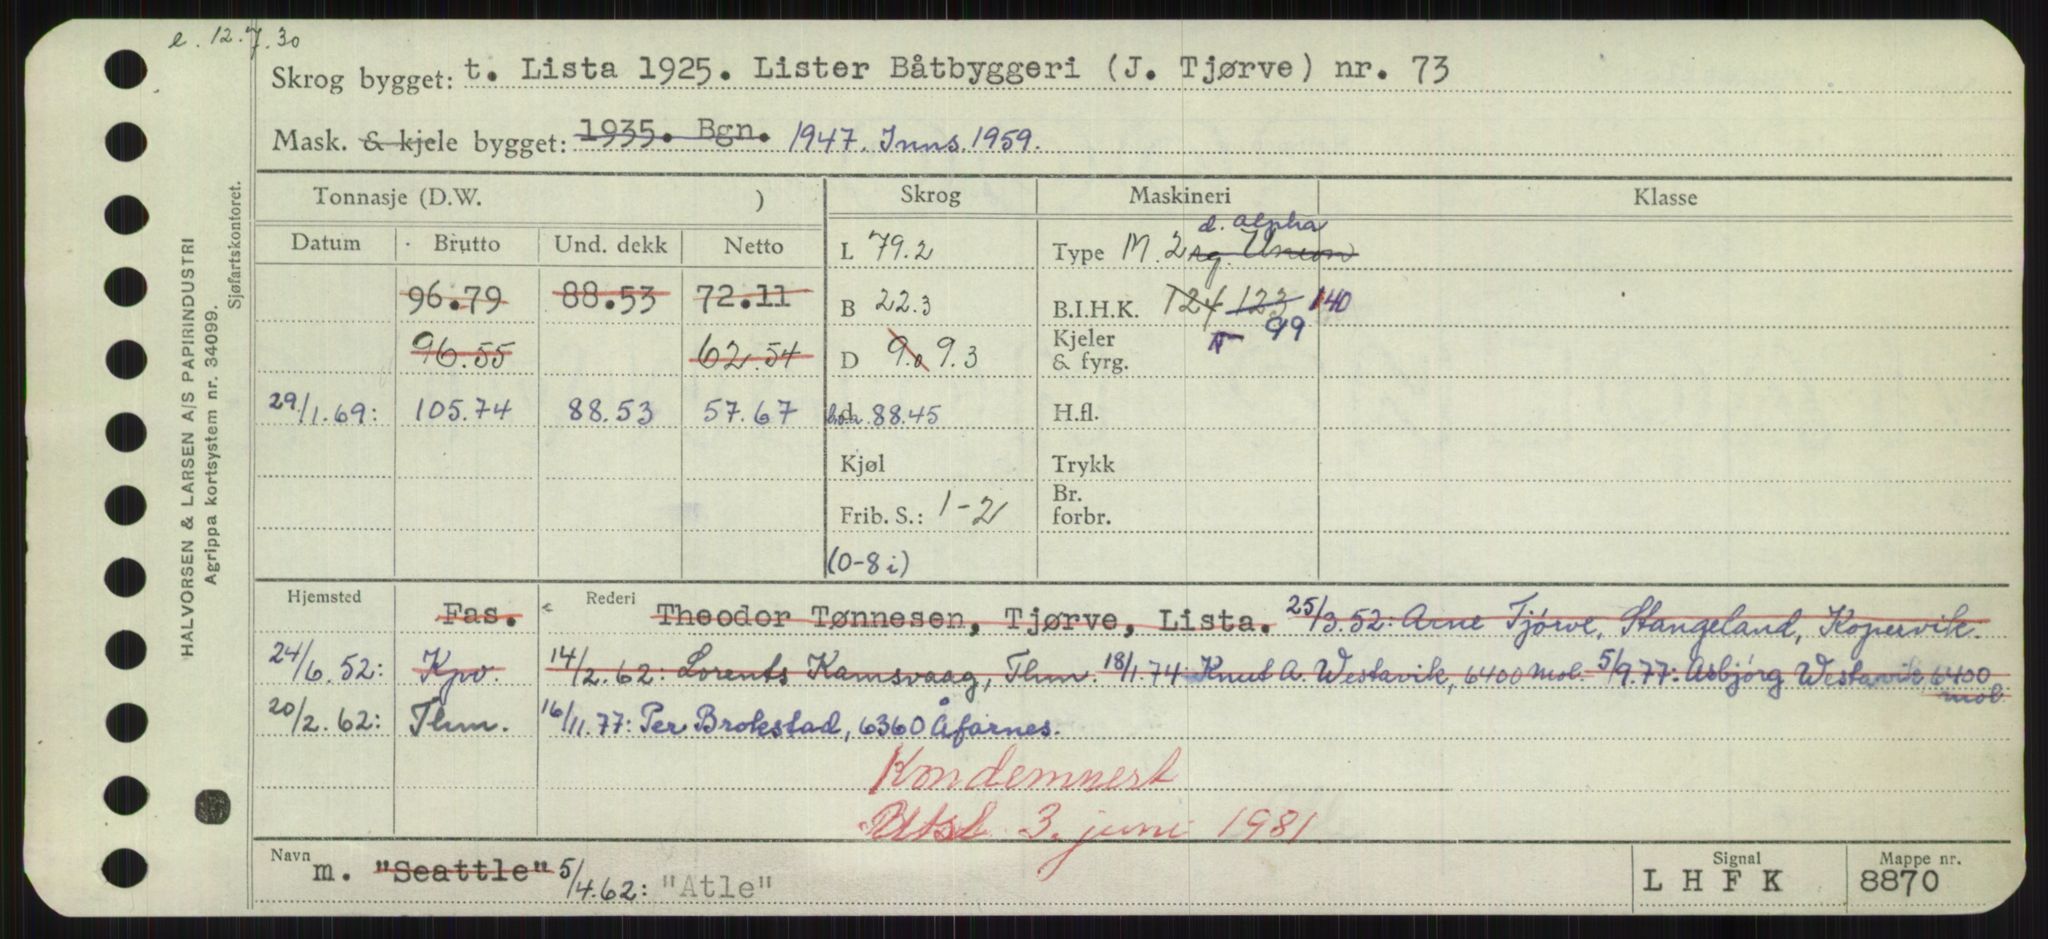 e. 12.7.30
Skrog bygget: t. Lista 1925. Lister Båtbyggeri (J. Tjørve) nr. 73
Mask. & kjele bygget: 1935. Bgn. 1947. Inns. 1959.
Tonnasje (D.W. ) Skrog Maskineri Klasse
Datum Brutto Und. dekk Netto
L 79.2
Type M. 2 sg. Union d. alpha
96.79 88.53 72.11
B 22.3
B.I.H.K. 124 123 140
99
96.55 62.54
D 9.0 9.3
Kjeler
& fyrg.
29/1.69: 105.74 88.53 57.67
d. 88.45
H.fl.
Kjøl
Trykk
Frib. S.: 1-2
Br.
forbr.
(0-8i)
Hjemsted Fas. Rederi Theodor Tønnesen, Tjørve, Lista. 25/3.52: Arne Tjörve, Stangeland, Kopervik.
24/6.52: Kpv. 14/2.62: Lorents Kamsvaag, Thm. 18/1.74: Knut A. Westavik, 6400 Mol. 5/9.77: Asbjörg Westavik, 6400 mol
20/2.62: Thm. 16/11.77: Per Brokstad, 6360 Åfarnes.
Kondemnert
Utsl 3. juni 1981
Navn m. "Seattle" 5/4.62: "Atle"
Signal L H F K
Mappe nr. 8870
HALVORSEN & LARSEN A/S PAPIRINDUSTRI
Agrippa kortsystem nr. 34099.
Sjøfartskontoret.